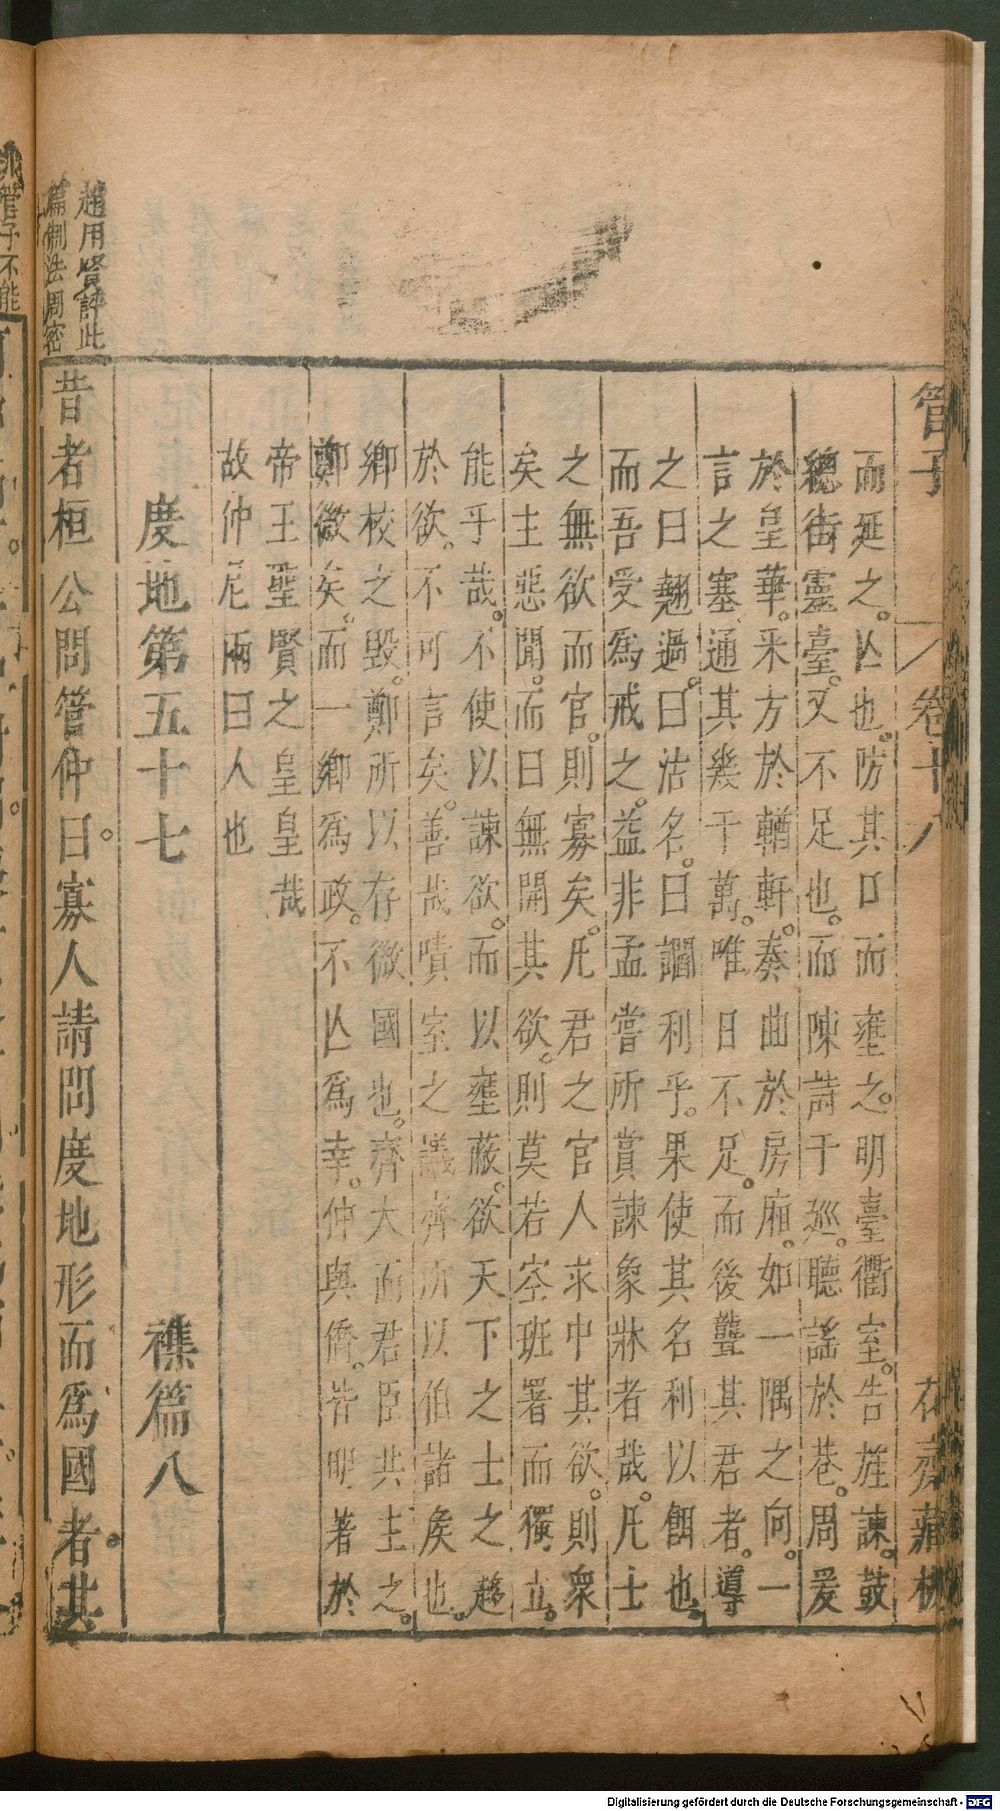 管子 卷十八 花齋藏板
而延之。亾也。防其口而壅之。明臺衢室。告旌諫。鼓
總街靈臺。又不足也。而陳詩于巡。聽謠於巷。周爰
於皇華。采方於輶軒。奏曲於房廂。如一隅之向。一
言之塞。通其幾千萬。唯日不足。而後聾其君者。導
之曰翹過。曰沽名。曰讕利乎。果使其名利以餌也。
而吾受爲戒之。益非孟嘗所賞諫象牀者哉。凡士
之無欲而官。則寡矣。凡君之官人求中其欲。則衆
矣。主惡聞。而曰無開其欲。則莫若空班署而獨立。
能乎哉。不使以諫欲。而以壅蔽。欲天下之士之趍
於欲。不可言矣。善哉嘖室之議。齊所以伯諸矦也。
鄉校之毀。鄭所以存微國也。齊大而君臣共主之。
鄭微矣。而一鄉爲政。不亾爲幸。仲與僑。皆明著於
帝王聖賢之皇皇哉
故仲尼兩曰人也
度地第五十七 襍篇八
昔者桓公問管仲曰。寡人請問度地形而爲國者。其
趙用賢評此
篇制法周密
管子不能
Digitalisierung gefördert durch die Deutsche Forschungsgemeinschaft - DFG